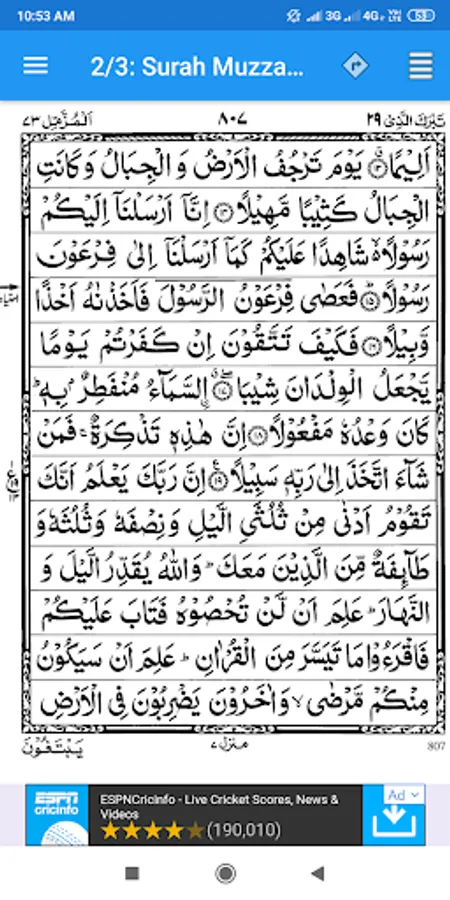 10:53 AM 3G 4G VoLTE 53
2/3: Surah Muzza...
تَبٰرَكَ الَّذِیْ ۲۹ ۸۰۷ اَلْمُزَّمِّل ۷۳
اَلِیْمًا۝۱۳ یَوْمَ تَرْجُفُ الْاَرْضُ وَ الْجِبَالُ وَ كَانَتِ
الْجِبَالُ كَثِیْبًا مَّهِیْلًا۝۱۴ اِنَّاۤ اَرْسَلْنَاۤ اِلَیْكُمْ
رَسُوْلًا ۙ۬ شَاهِدًا عَلَیْكُمْ كَمَاۤ اَرْسَلْنَاۤ اِلٰى فِرْعَوْنَ
رَسُوْلًاؕ۝۱۵ فَعَصٰى فِرْعَوْنُ الرَّسُوْلَ فَاَخَذْنٰهُ اَخْذًا
وَّبِیْلًا۝۱۶ فَكَیْفَ تَتَّقُوْنَ اِنْ كَفَرْتُمْ یَوْمًا
یَّجْعَلُ الْوِلْدَانَ شِیْبَا ۗۖ۝۱۷ اِ۟لسَّمَآءُ مُنْفَطِرٌۢ بِهٖ ؕ
كَانَ وَعْدُهٗ مَفْعُوْلًا۝۱۸ اِنَّ هٰذِهٖ تَذْكِرَةٌ ۚ فَمَنْ
شَآءَ اتَّخَذَ اِلٰى رَبِّهٖ سَبِیْلًا۠۝۱۹ اِنَّ رَبَّكَ یَعْلَمُ اَنَّكَ
تَقُوْمُ اَدْنٰى مِنْ ثُلُثَیِ الَّیْلِ وَ نِصْفَهٗ وَ ثُلُثَهٗ وَ
طَآىِٕفَةٌ مِّنَ الَّذِیْنَ مَعَكَ ؕ وَ اللّٰهُ یُقَدِّرُ الَّیْلَ وَ
النَّهَارَ ؕ عَلِمَ اَنْ لَّنْ تُحْصُوْهُ فَتَابَ عَلَیْكُمْ
فَاقْرَءُوْا مَا تَیَسَّرَ مِنَ الْقُرْاٰنِ ؕ عَلِمَ اَنْ سَیَكُوْنُ
مِنْكُمْ مَّرْضٰى ۙ وَ اٰخَرُوْنَ یَضْرِبُوْنَ فِی الْاَرْضِ
یَبْتَغُوْنَ منزل ۷ 807
ESPN cricinfo
ESPNCricinfo - Live Cricket Scores, News & Videos
(190,010)
Ad